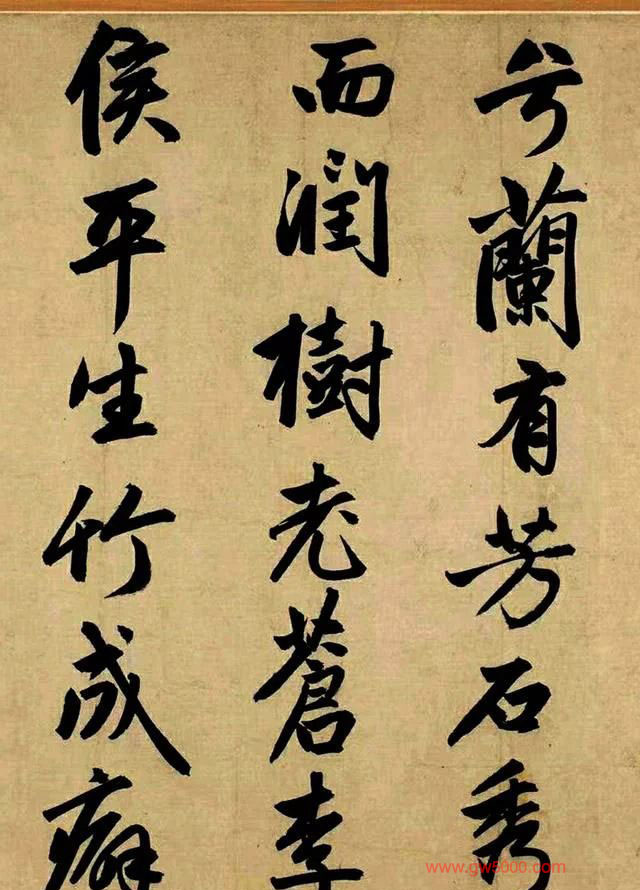 兮蘭有芳石秀
而潤樹老蒼李
侯平生竹成癖
www.gw5000.com